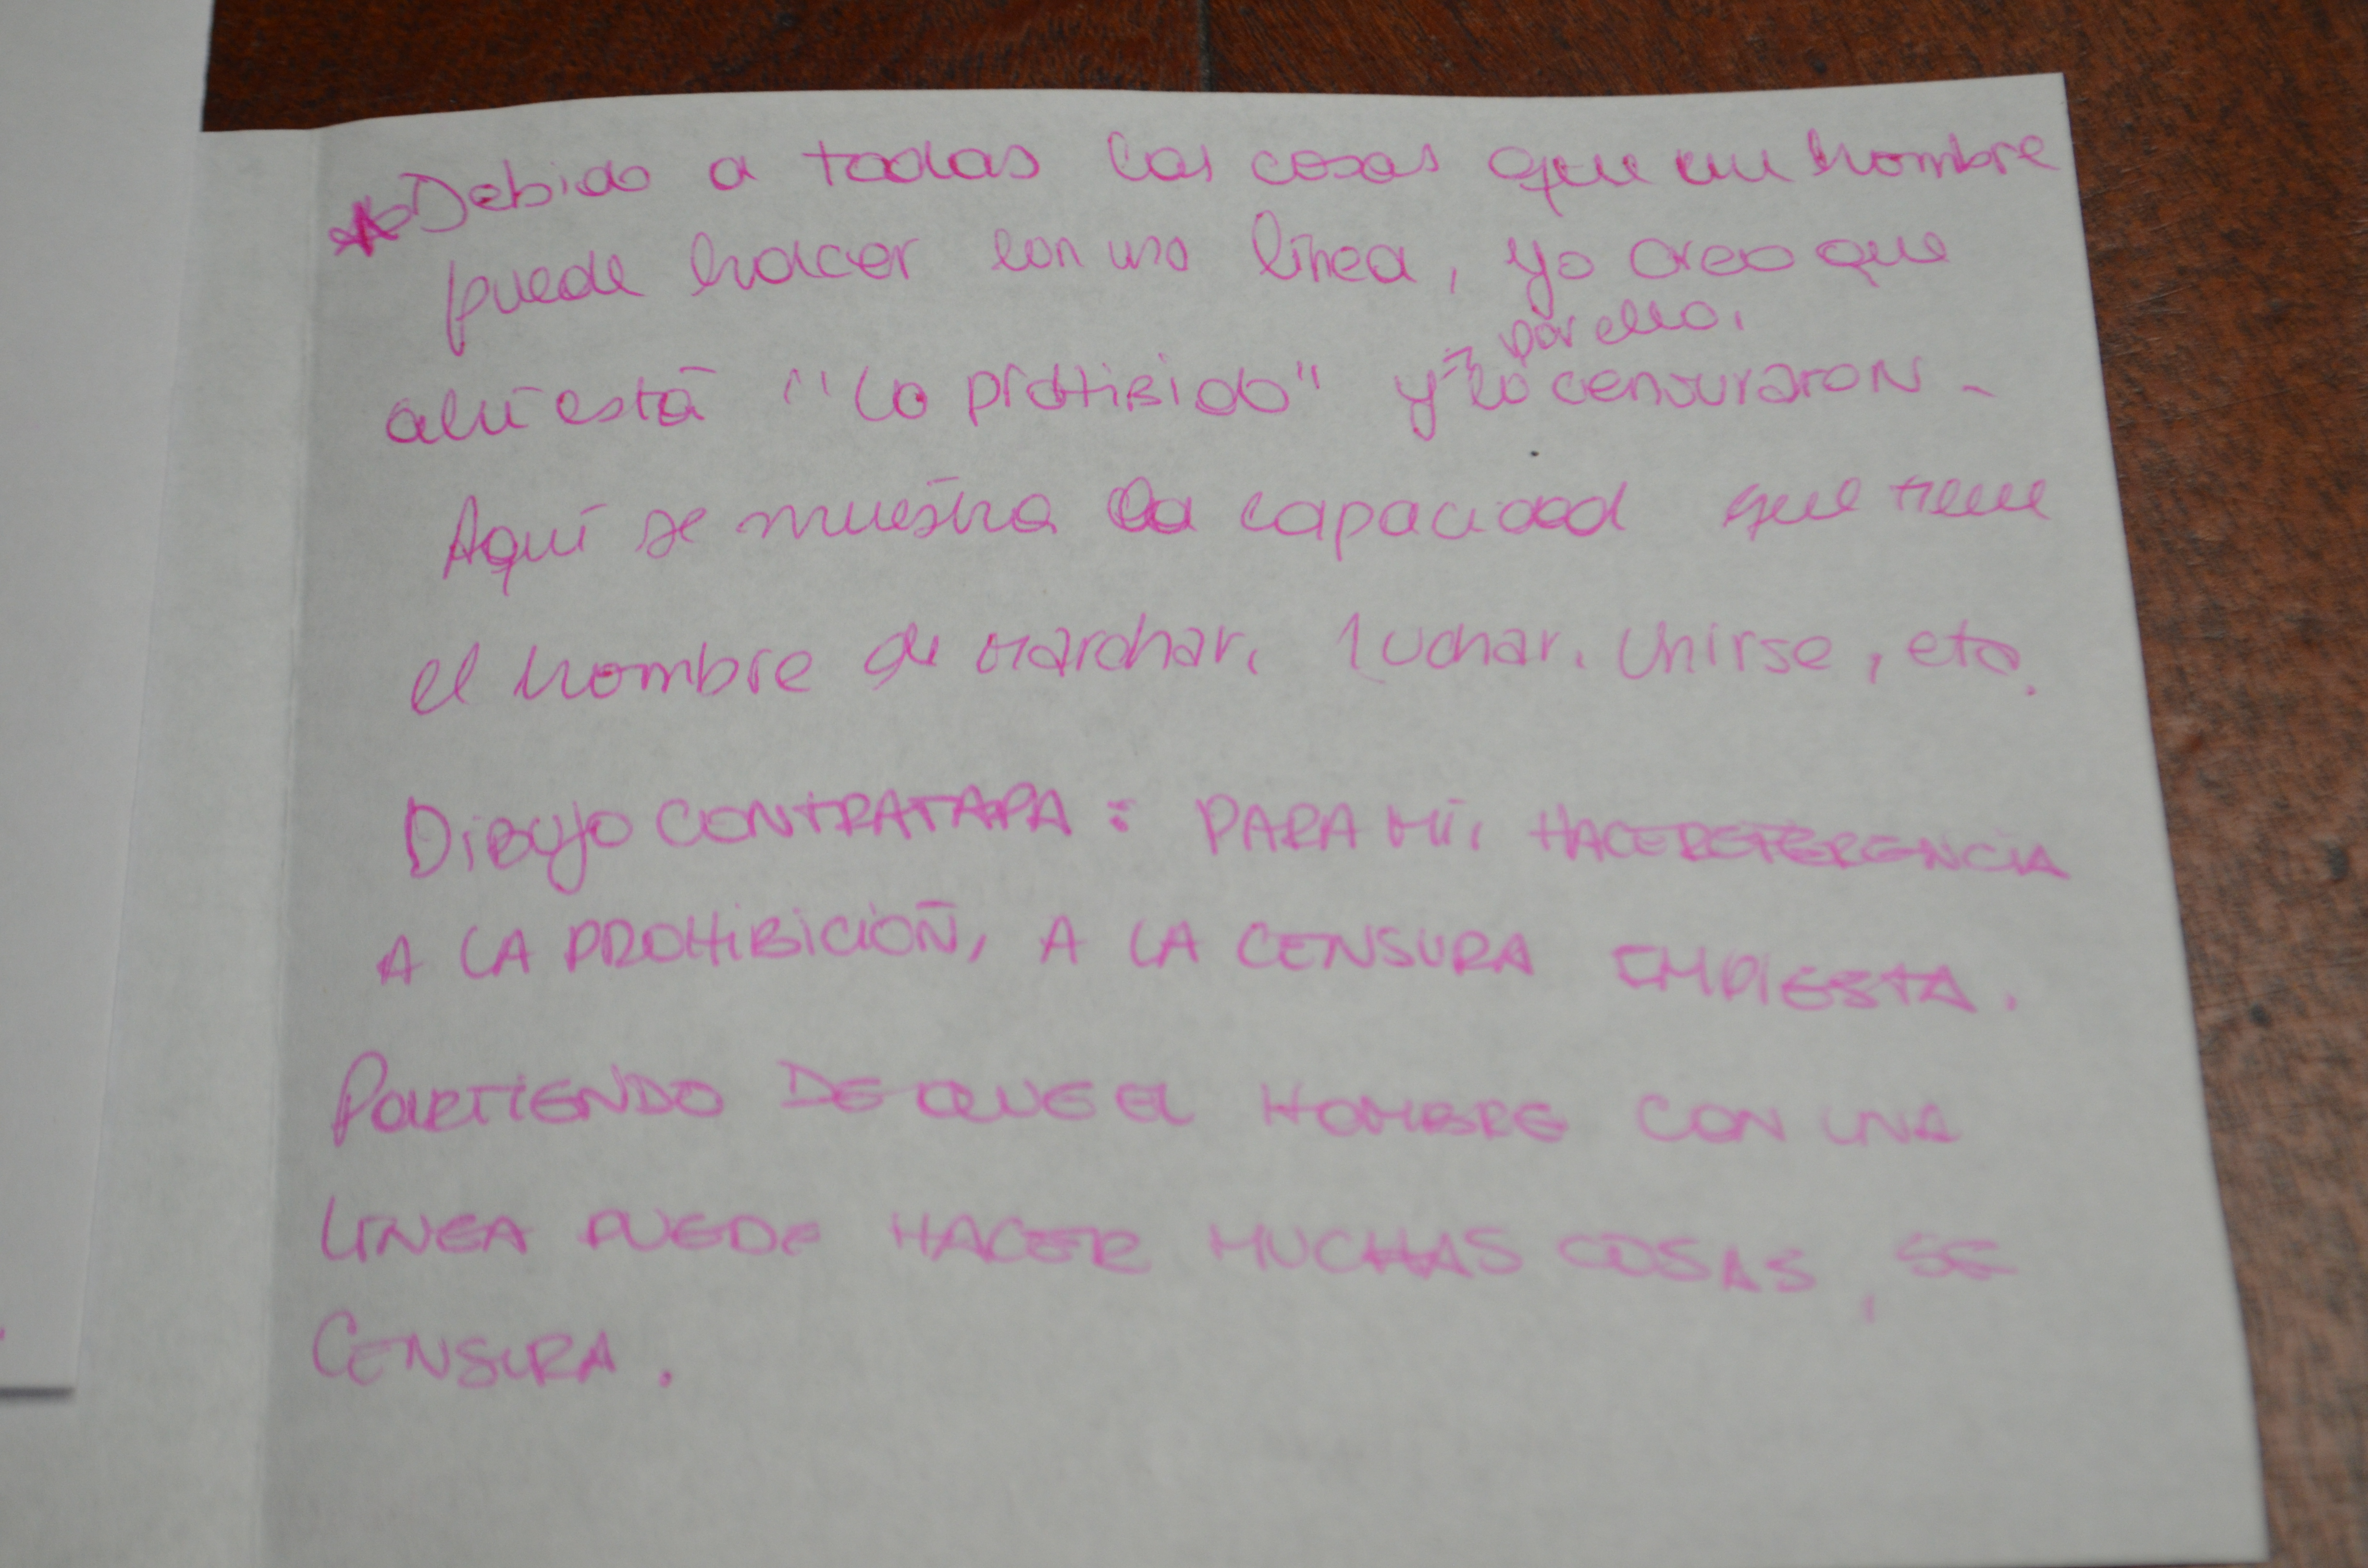 * Debido a todas las cosas que un hombre
puede hacer con una línea, yo creo que
por ello,
ahí está "lo prohibido" y lo censuraron -
Aquí se muestra la capacidad que tiene
el hombre de marchar, luchar, unirse, etc.
DiBUJO CONTRATAPA: PARA MÍ, HACE REFERENCIA
A LA PROHIBICIÓN, A LA CENSURA IMPUESTA.
PARTIENDO DE QUE EL HOMBRE CON UNA
LINEA PUEDE HACER MUCHAS COSAS, SE
CENSURA.